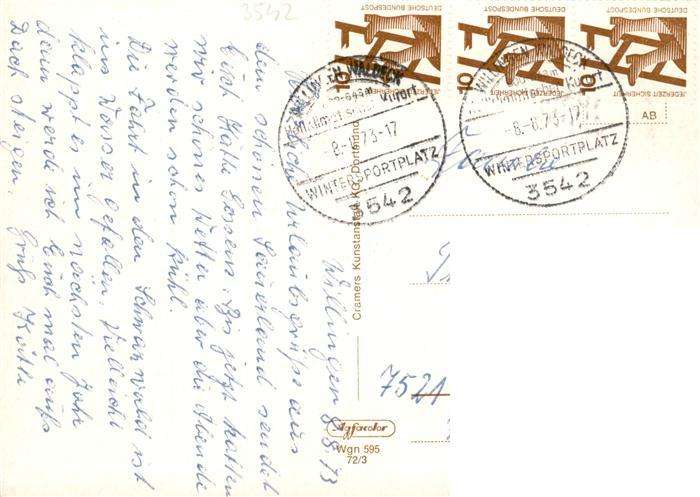 3542
Willingen 8.8.73
Herzliche Urlaubsgrüße aus
dem schönen Sauerland sendet
Euch Käthe. Bis jetzt hatten
wir schönes Wetter aber die Abende
werden schon kühl.
Die Fahrt in den Schwarzwald ist
ins Wasser gefallen. Vielleicht
klappt es im nächsten Jahr
dann werde ich Euch mal aufs
Dach steigen.
Gruß Käthe
Cramers Kunstanstalt KG, Dortmund
Agfacolor
Wgn 595
72/3
DEUTSCHE BUNDESPOST
JEDERZEIT SICHERHEIT
10
DEUTSCHE BUNDESPOST
JEDERZEIT SICHERHEIT
10
DEUTSCHE BUNDESPOST
JEDERZEIT SICHERHEIT
10
AB
WALDECK
-8.-8.73-17
WINTERSPORTPLATZ
3542
-8.-8.73-17
WINTERSPORTPLATZ
3542
7521